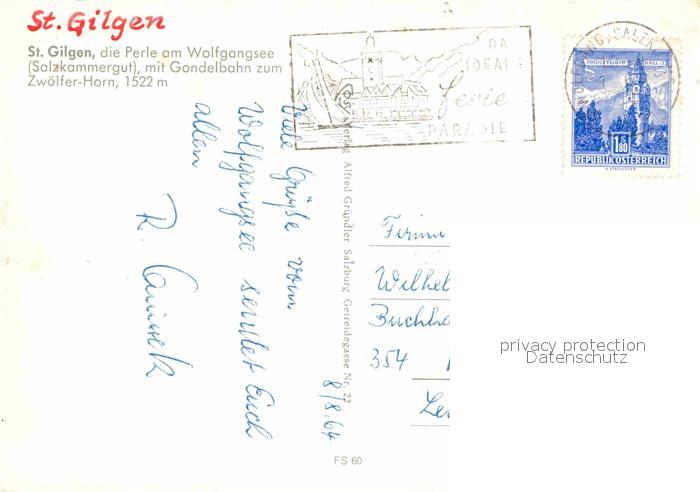 St. Gilgen
St. Gilgen, die Perle am Wolfgangsee
(Salzkammergut), mit Gondelbahn zum
Zwölfer-Horn, 1522 m
DAS
IDEALE
Ferien
PARADIES
MÜNZTURM HALL
1.80
REPUBLIK ÖSTERREICH
Verlag Alfred Gründler Salzburg Getreidegasse Nr. 22
Viele Grüße vom
Wolfgangsee sendet Euch
allen
R.
8/8.64
Firma
Wilhel
Buchha
354
privacy protection
Datenschutz
FS 60